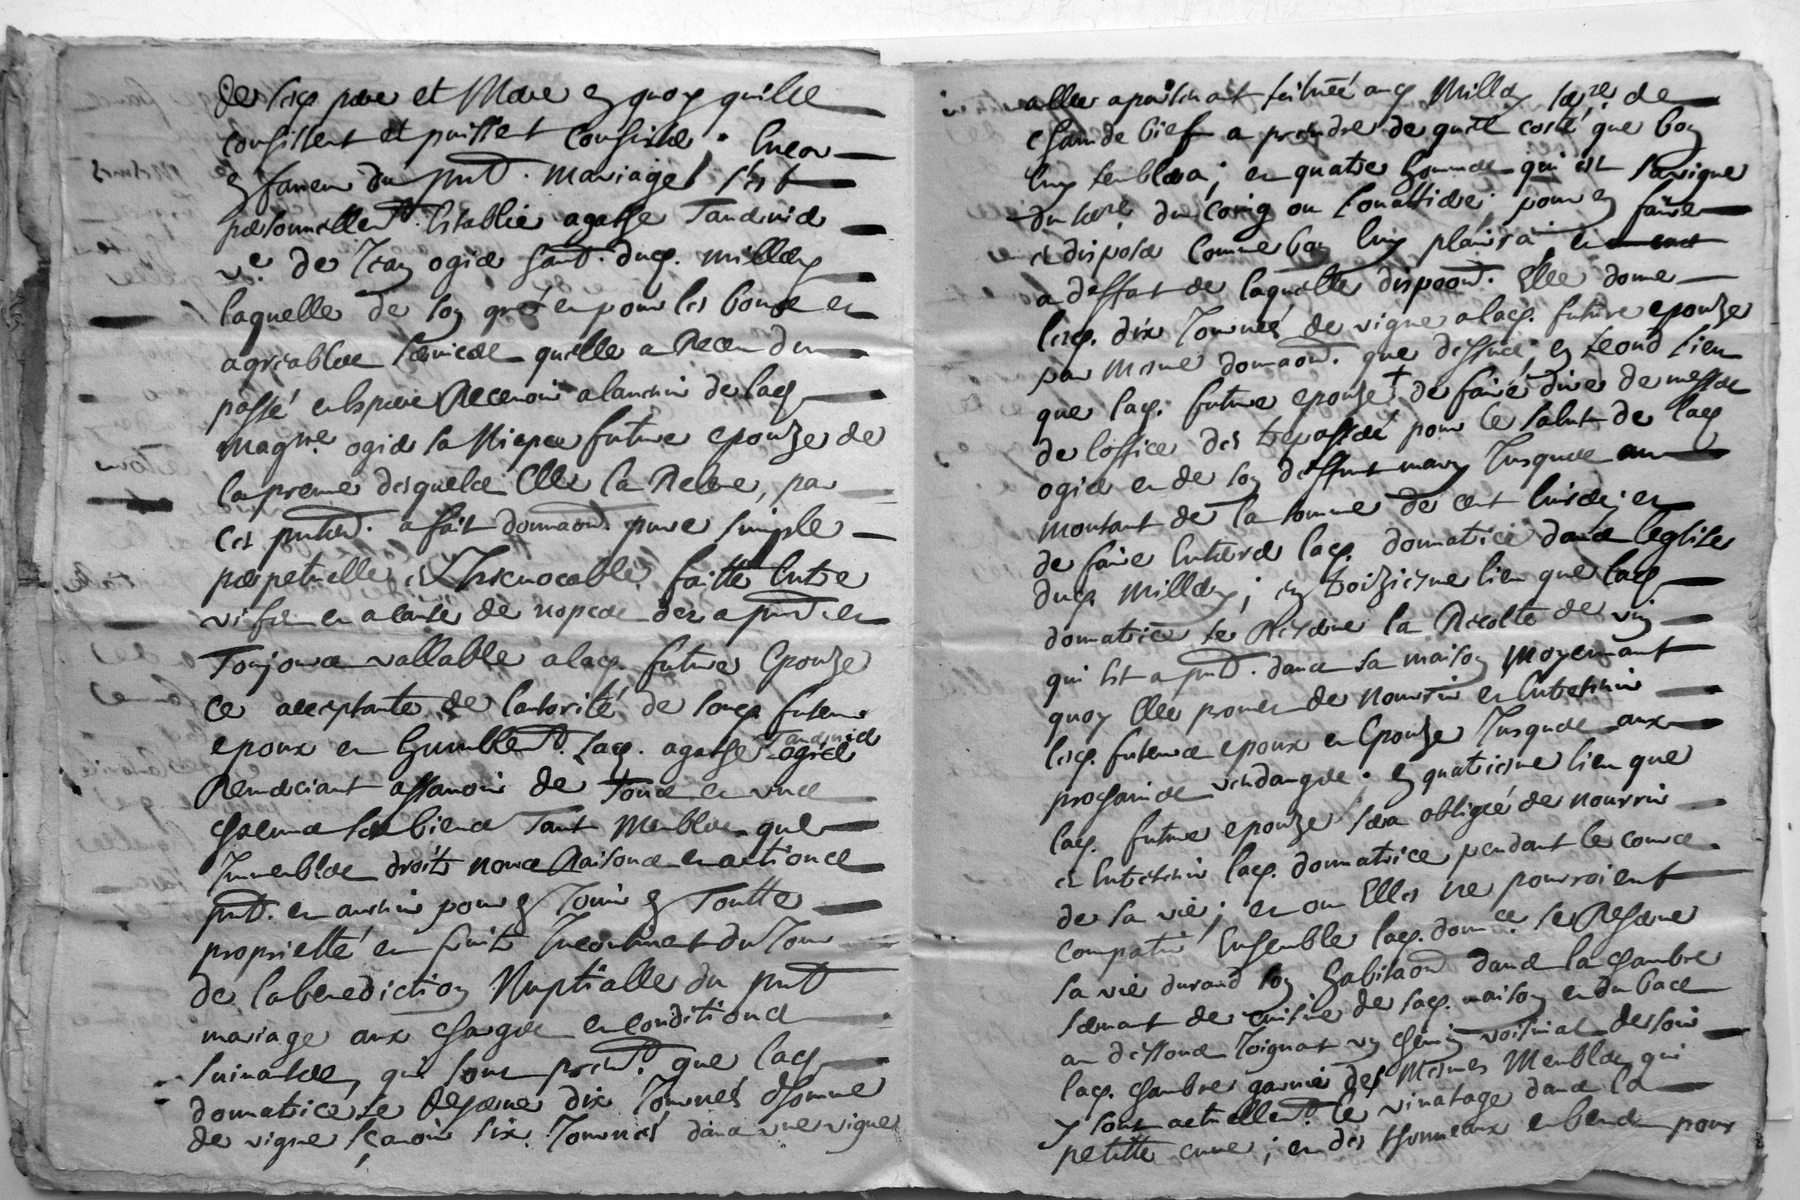 desd. pere et Mere en quoy quilz
consistent et puissent consister. Encor
en faveur du pnt. mariage s'est
personnellent. Establie agathe Tandnid
ve. de Jean ogier hant. dud. milley
laquelle de son gré et pour les bons et
agreables services quelle a Receu du
passé et espere Recevoir a lavenir de lad.
magne. ogier sa Niepce future epouze de
la preuve desquels Elle la Releve, par
ces pntes. a fait donnaon. pure simple
perpetuelle et Irrevocable faitte Entre
vifs et a cause de nopces des a pnt et
Toujours vallable a lad. future Epouze
ce acceptante de lautorité de soud. futur
epoux et humblemt. lad. agathe Tandnid ogier
Remerciant assavoir de Tous et uns
chacuns ses biens Tant Meubles que
Immeubles droits noms Raisons et actions
pnt. et avenir pour en Jouir en Toutte
proprietté et fruits Incontinent du Jour
de la benediction Nuptialle du pnt
mariage aux charges et conditions
suivantes, qui sont premt. que lad.
donnatrice se Reserve dix Journés dhomme
de vigne sçavoir six Journés dans une vigne
a elle apartenant situee aud. Milley terre. de
chamde bief a prendre de quel costé que bon
luy semblera; et quatre hommes qui est sa vigne
du terre. du Corig ou Conattier pour en faire
et disposer comme bon luy plaira, et
a deffaut de laquelle dispoon. Elle donne
lesd. dix Journés de vigne a lad. future epouze
par mesme donnaon. que dessus; en second lieu
que lad. future epouze de faire dire de messes
de loffice des trepassés pour le salut de lad.
ogier et de son deffunt mary Jusques au
montant de la somme de cent livres; et
de faire Enterrer lad. donnatrice dans leglise
dud. Milley; en troizieme lieu que lad.
donnatrice se Reserve la Recolte de vin
qui est a pnt. dans sa maison moyennant
quoy Elle promet de nourrir et Entretenir
lesd. futurs epoux et Epouze Jusques aux
prochaines vendanges. en quatriesme lieu que
lad. future epouze sera obligée de nourrir
et Entretenir lad. donnatrice pendant le cours
de sa vie; et ou Elles ne pourroient
compatir Ensemble lad. donce. se Reserve
sa vie durand son habitaon dans la chambre
servant de cuisine de sad. maison et du bas
au dessous Joignant un chemin voisinal de soir
lad. chambre garnie des mesmes Meubles qui
y sont actuellemt. le vinatage dans la
petitte cuve; et des thonneaux et bends pour